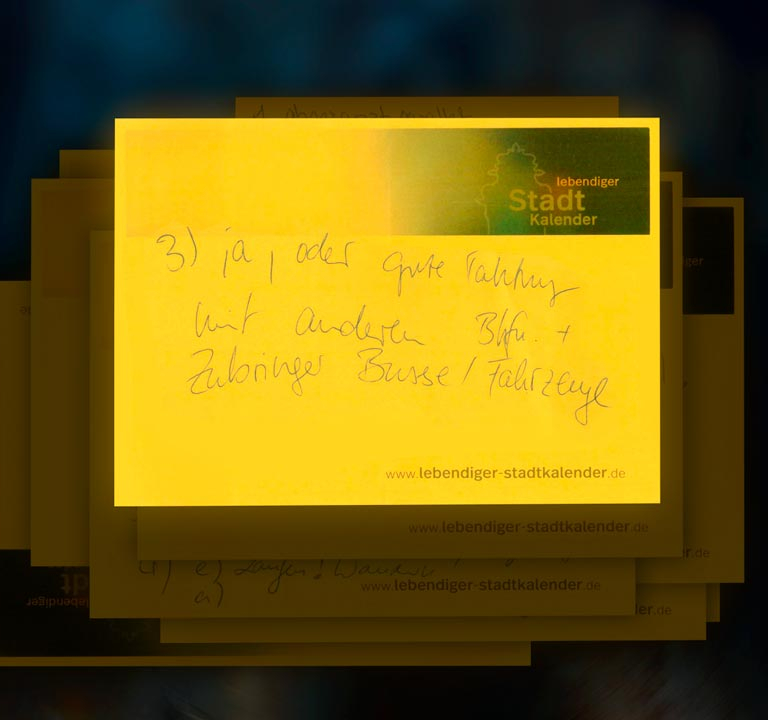 lebendiger
Stadt
Kalender
3) ja, oder gute Taktung
mit anderen Bhfn. +
Zubringer Busse / Fahrzeuge
www.lebendiger-stadtkalender.de
www.lebendiger-stadtkalender.de
www.lebendiger-stadtkalender.de